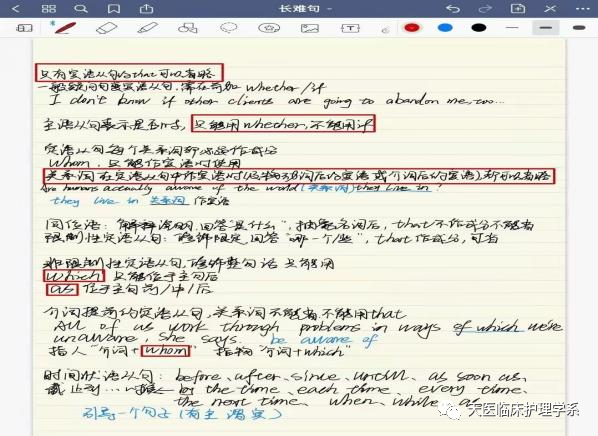 长难句
只有宾语从句的that可以省略
一般疑问句变宾语从句,需在前加 whether/if
I don't know if other clients are going to abandon me, too...
主语从句表示是否时,只能用whether,不能用if
定语从句每个关系词都必须作成分
Whom,只能作宾语时使用
关系词在定语从句中作宾语时(及物动词后的宾语或介词后的宾语),都可以省略
Are humans actually aware of the world (关系词) they live in?
they live in 关系词 作宾语
同位语:解释说明,回答"是什么",抽象名词后,that不作成分不能省
限制性定语从句:修饰限定,回答"哪一个/些",that作成分,可省
非限制性定语从句,修饰整句话只能用
which 只能位于主句后
as 位于主句前/中/后
介词提前的定语从句,关系词不能省,不能用that
All of us work through problems in ways of which we're
unaware, she says. be aware of
指人"介词+whom" 指物"介词+which"
时间状语从句:before、after、since、until、as soon as、
截止到... by the time、each time、every time、
the next time、when、while、as
引导一个句子(有主谓宾)
天医临床护理学系